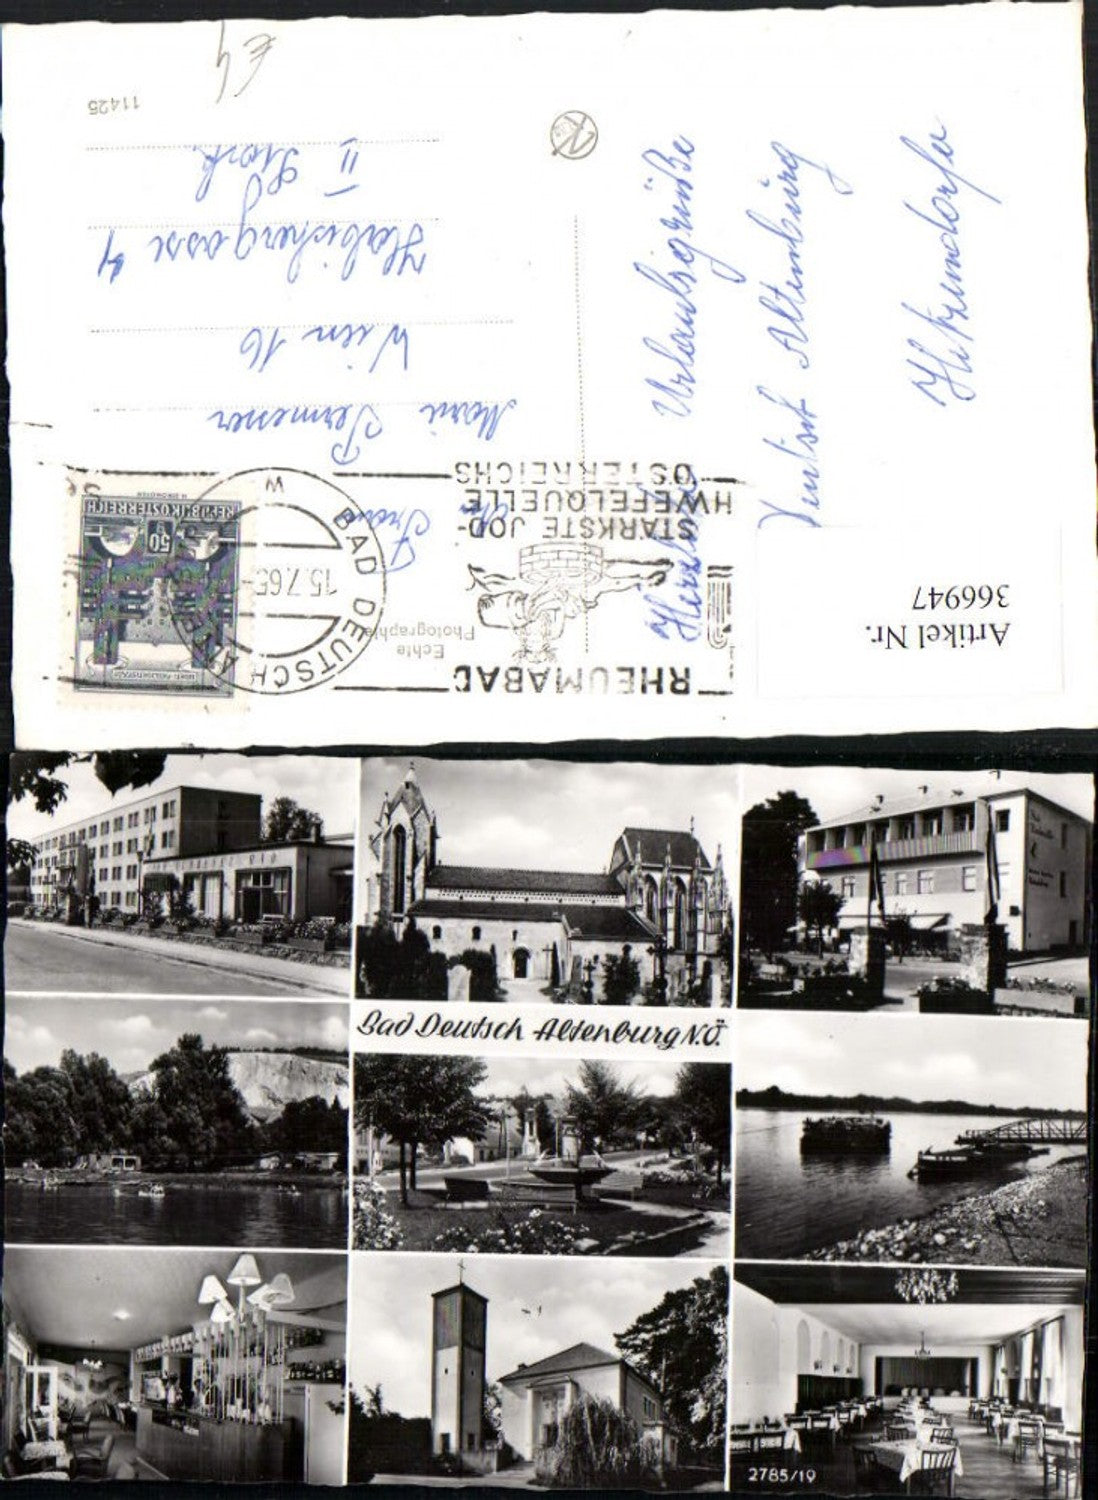 Artikel Nr.
366947
Herzliche
Urlaubsgrüße
Deutsch Altenburg
An
Frau
Marie
Wien 16
Habichergasse 4
II Stock
Echte
Photographie
11425
RHEUMABAD
STÄRKSTE JOD-
HWEFELQUELLE
ÖSTERREICHS
BAD DEUTSCH ALTENBURG
15.7.65
REPUBLIK ÖSTERREICH
50
€4
Bad Deutsch Altenburg N.Ö.
2785/19